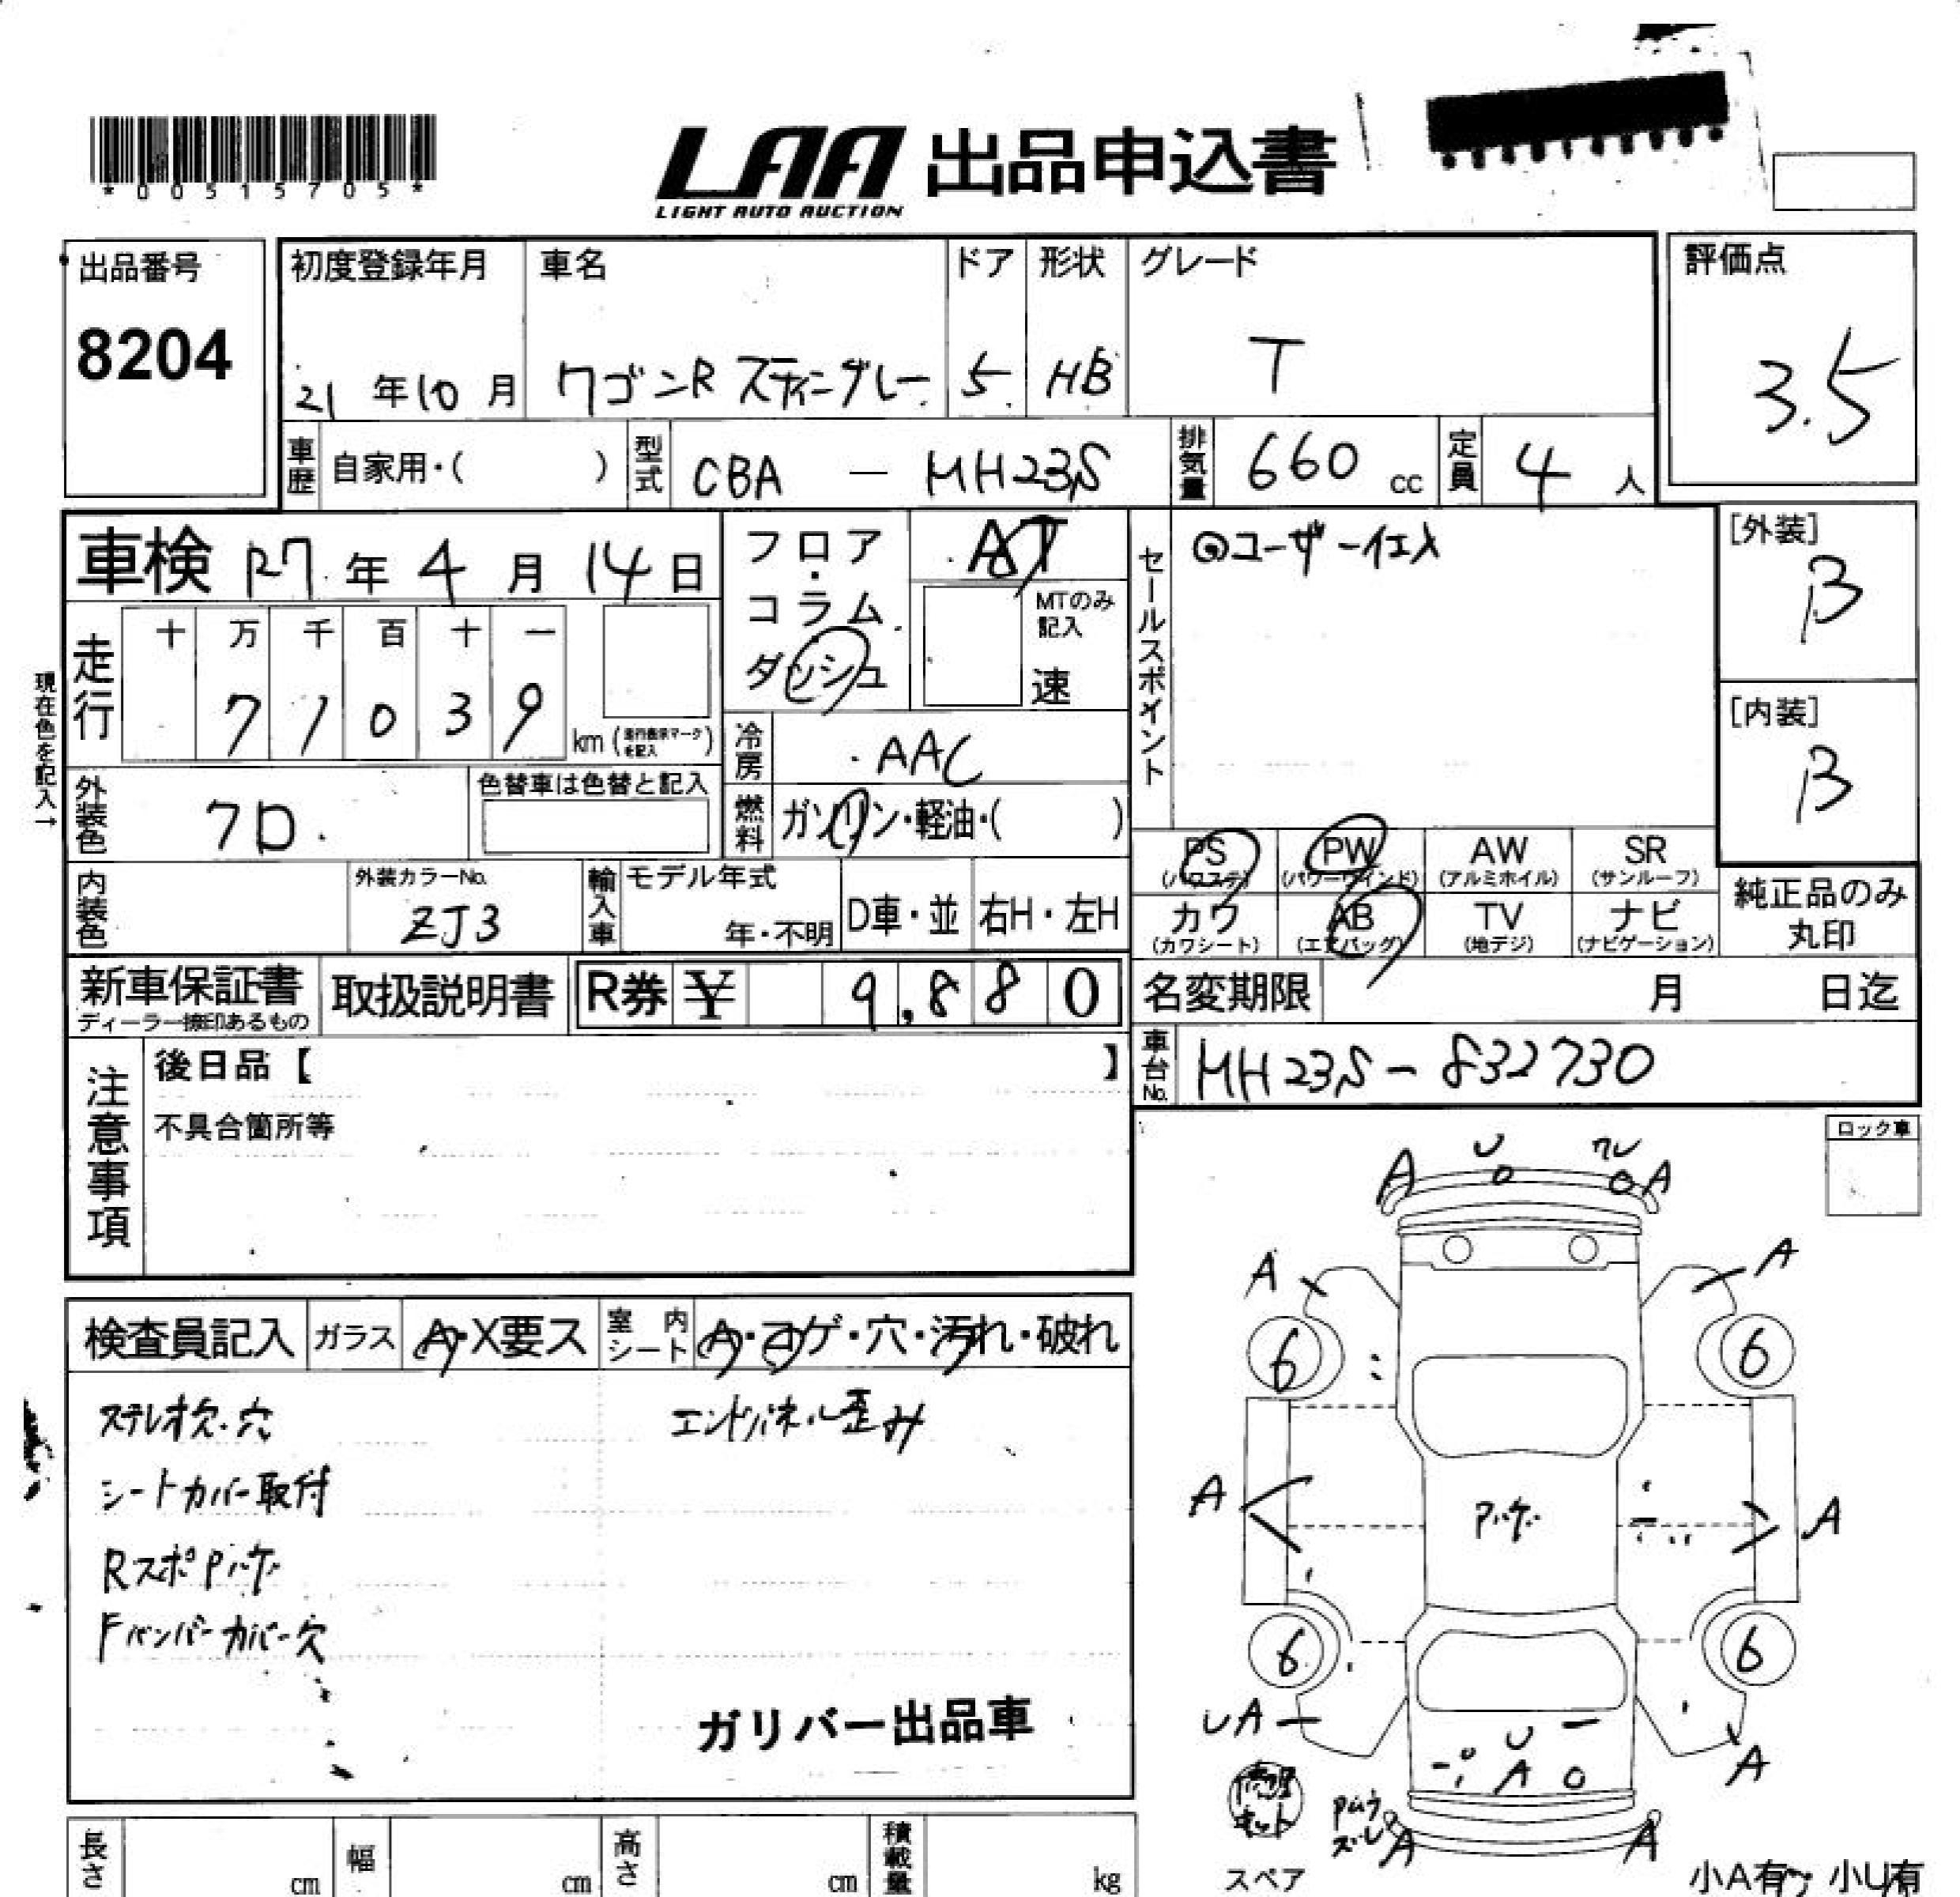 *00515705*
LAA 出品申込書
LIGHT AUTO AUCTION
出品番号
8204
初度登録年月
21年10月
車名
ワゴンR スティングレー
ドア
5
形状
HB
グレード
T
評価点
3.5
車歴 自家用・( )
型式 CBA - MH23S
排気量 660 cc
定員 4人
車検 R7年4月14日
フロア・コラム・ダッシュ
AT
MTのみ記入
速
セールスポイント
◎ユーザー仕入
[外装]
B
[内装]
B
現在色を記入→
走行
十 万 千 百 十 一
7 1 0 3 9 km
冷房 AAC
外装色 クロ
色替車は色替と記入
燃料 ガソリン・軽油・( )
内装色
外装カラーNo.
ZJ3
輸入車
モデル年式
年・不明
D車・並
右H・左H
PS (パワステ)
PW (パワーウインド)
AW (アルミホイル)
SR (サンルーフ)
カワ (カワシート)
AB (エアバッグ)
TV (地デジ)
ナビ (ナビゲーション)
純正品のみ
丸印
新車保証書
ディーラー捺印あるもの
取扱説明書
R券 ¥ 9,880
名変期限 月 日迄
車台No. MH23S-832730
注意事項
後日品【 】
不具合箇所等
ロック車
検査員記入
ガラス A・X要ス
室内シート A・コゲ・穴・汚れ・破れ
ステレオ欠・穴
エンドパネル歪み
シートカバー取付
RスポPハゲ
Fバンパーカバー欠
ガリバー出品車
A U ワレ A
A A
6 6
A Pハゲ A
6 6
UA U A A
修理キット
A A
スペア
小A有 小U有
長さ cm
幅 cm
高さ cm
積載量 kg